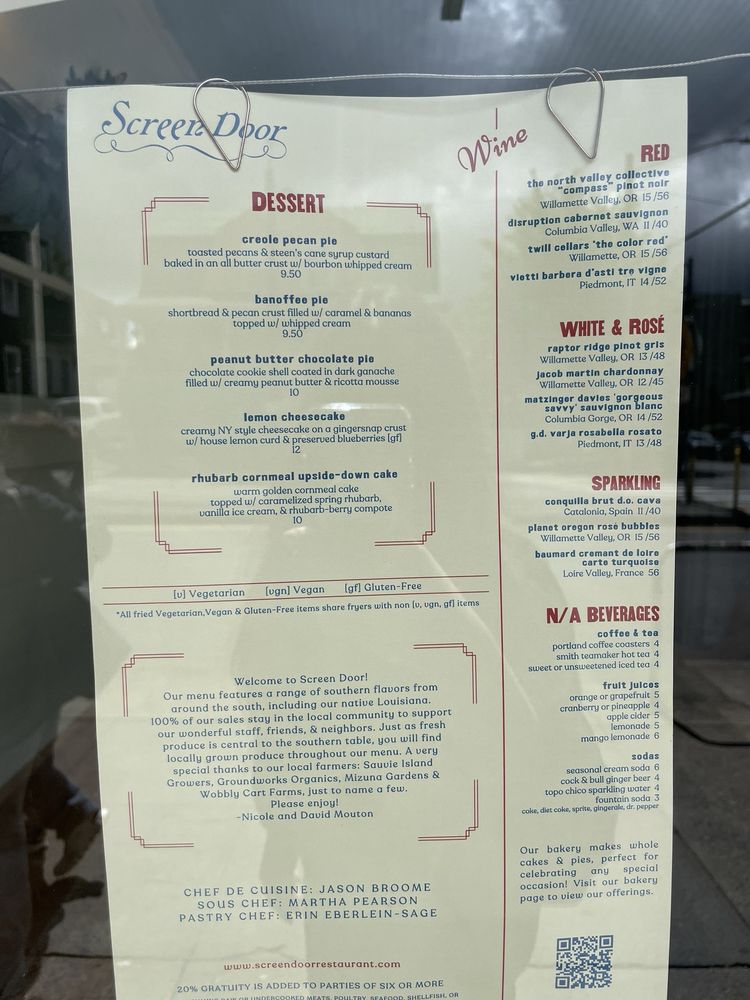 Screen Door
DESSERT
creole pecan pie
toasted pecans & steen's cane syrup custard
baked in an all butter crust w/ bourbon whipped cream
9.50
banoffee pie
shortbread & pecan crust filled w/ caramel & bananas
topped w/ whipped cream
9.50
peanut butter chocolate pie
chocolate cookie shell coated in dark ganache
filled w/ creamy peanut butter & ricotta mousse
10
lemon cheesecake
creamy NY style cheesecake on a gingersnap crust
w/ house lemon curd & preserved blueberries [gf]
12
rhubarb cornmeal upside-down cake
warm golden cornmeal cake
topped w/ caramelized spring rhubarb,
vanilla ice cream, & rhubarb-berry compote
10
[v] Vegetarian [vgn] Vegan [gf] Gluten-Free
*All fried Vegetarian,Vegan & Gluten-Free items share fryers with non [v, vgn, gf] items
Welcome to Screen Door!
Our menu features a range of southern flavors from
around the south, including our native Louisiana.
100% of our sales stay in the local community to support
our wonderful staff, friends, & neighbors. Just as fresh
produce is central to the southern table, you will find
locally grown produce throughout our menu. A very
special thanks to our local farmers: Sauvie Island
Growers, Groundworks Organics, Mizuna Gardens &
Wobbly Cart Farms, just to name a few.
Please enjoy!
-Nicole and David Mouton
CHEF DE CUISINE: JASON BROOME
SOUS CHEF: MARTHA PEARSON
PASTRY CHEF: ERIN EBERLEIN-SAGE
www.screendoorrestaurant.com
20% GRATUITY IS ADDED TO PARTIES OF SIX OR MORE
RAW OR UNDERCOOKED MEATS, POULTRY, SEAFOOD, SHELLFISH, OR
Wine
RED
the north valley collective
"compass" pinot noir
Willamette Valley, OR 15/56
disruption cabernet sauvignon
Columbia Valley, WA 11/40
twill cellars 'the color red'
Willamette, OR 15/56
vietti barbera d'asti tre vigne
Piedmont, IT 14/52
WHITE & ROSÉ
raptor ridge pinot gris
Willamette Valley, OR 13/48
jacob martin chardonnay
Willamette Valley, OR 12/45
matzinger davies 'gorgeous
savvy' sauvignon blanc
Columbia Gorge, OR 14/52
g.d. varja rosabella rosato
Piedmont, IT 13/48
SPARKLING
conquilla brut d.o. cava
Catalonia, Spain 11/40
planet oregon rosé bubbles
Willamette Valley, OR 15/56
baumard cremant de loire
carte turquoise
Loire Valley, France 56
N/A BEVERAGES
coffee & tea
portland coffee coasters 4
smith teamaker hot tea 4
sweet or unsweetened iced tea 4
fruit juices
orange or grapefruit 5
cranberry or pineapple 4
apple cider 5
lemonade 5
mango lemonade 6
sodas
seasonal cream soda 6
cock & bull ginger beer 4
topo chico sparkling water 4
fountain soda 3
coke, diet coke, sprite, gingerale, dr. pepper
Our bakery makes whole
cakes & pies, perfect for
celebrating any special
occasion! Visit our bakery
page to view our offerings.